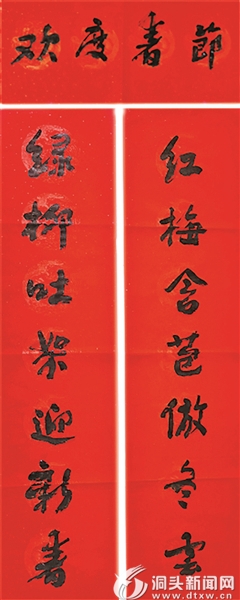 欢度春節
红梅含苞傲冬雪
緑柳吐絮迎新春
洞头新闻网
www.dtxw.cn